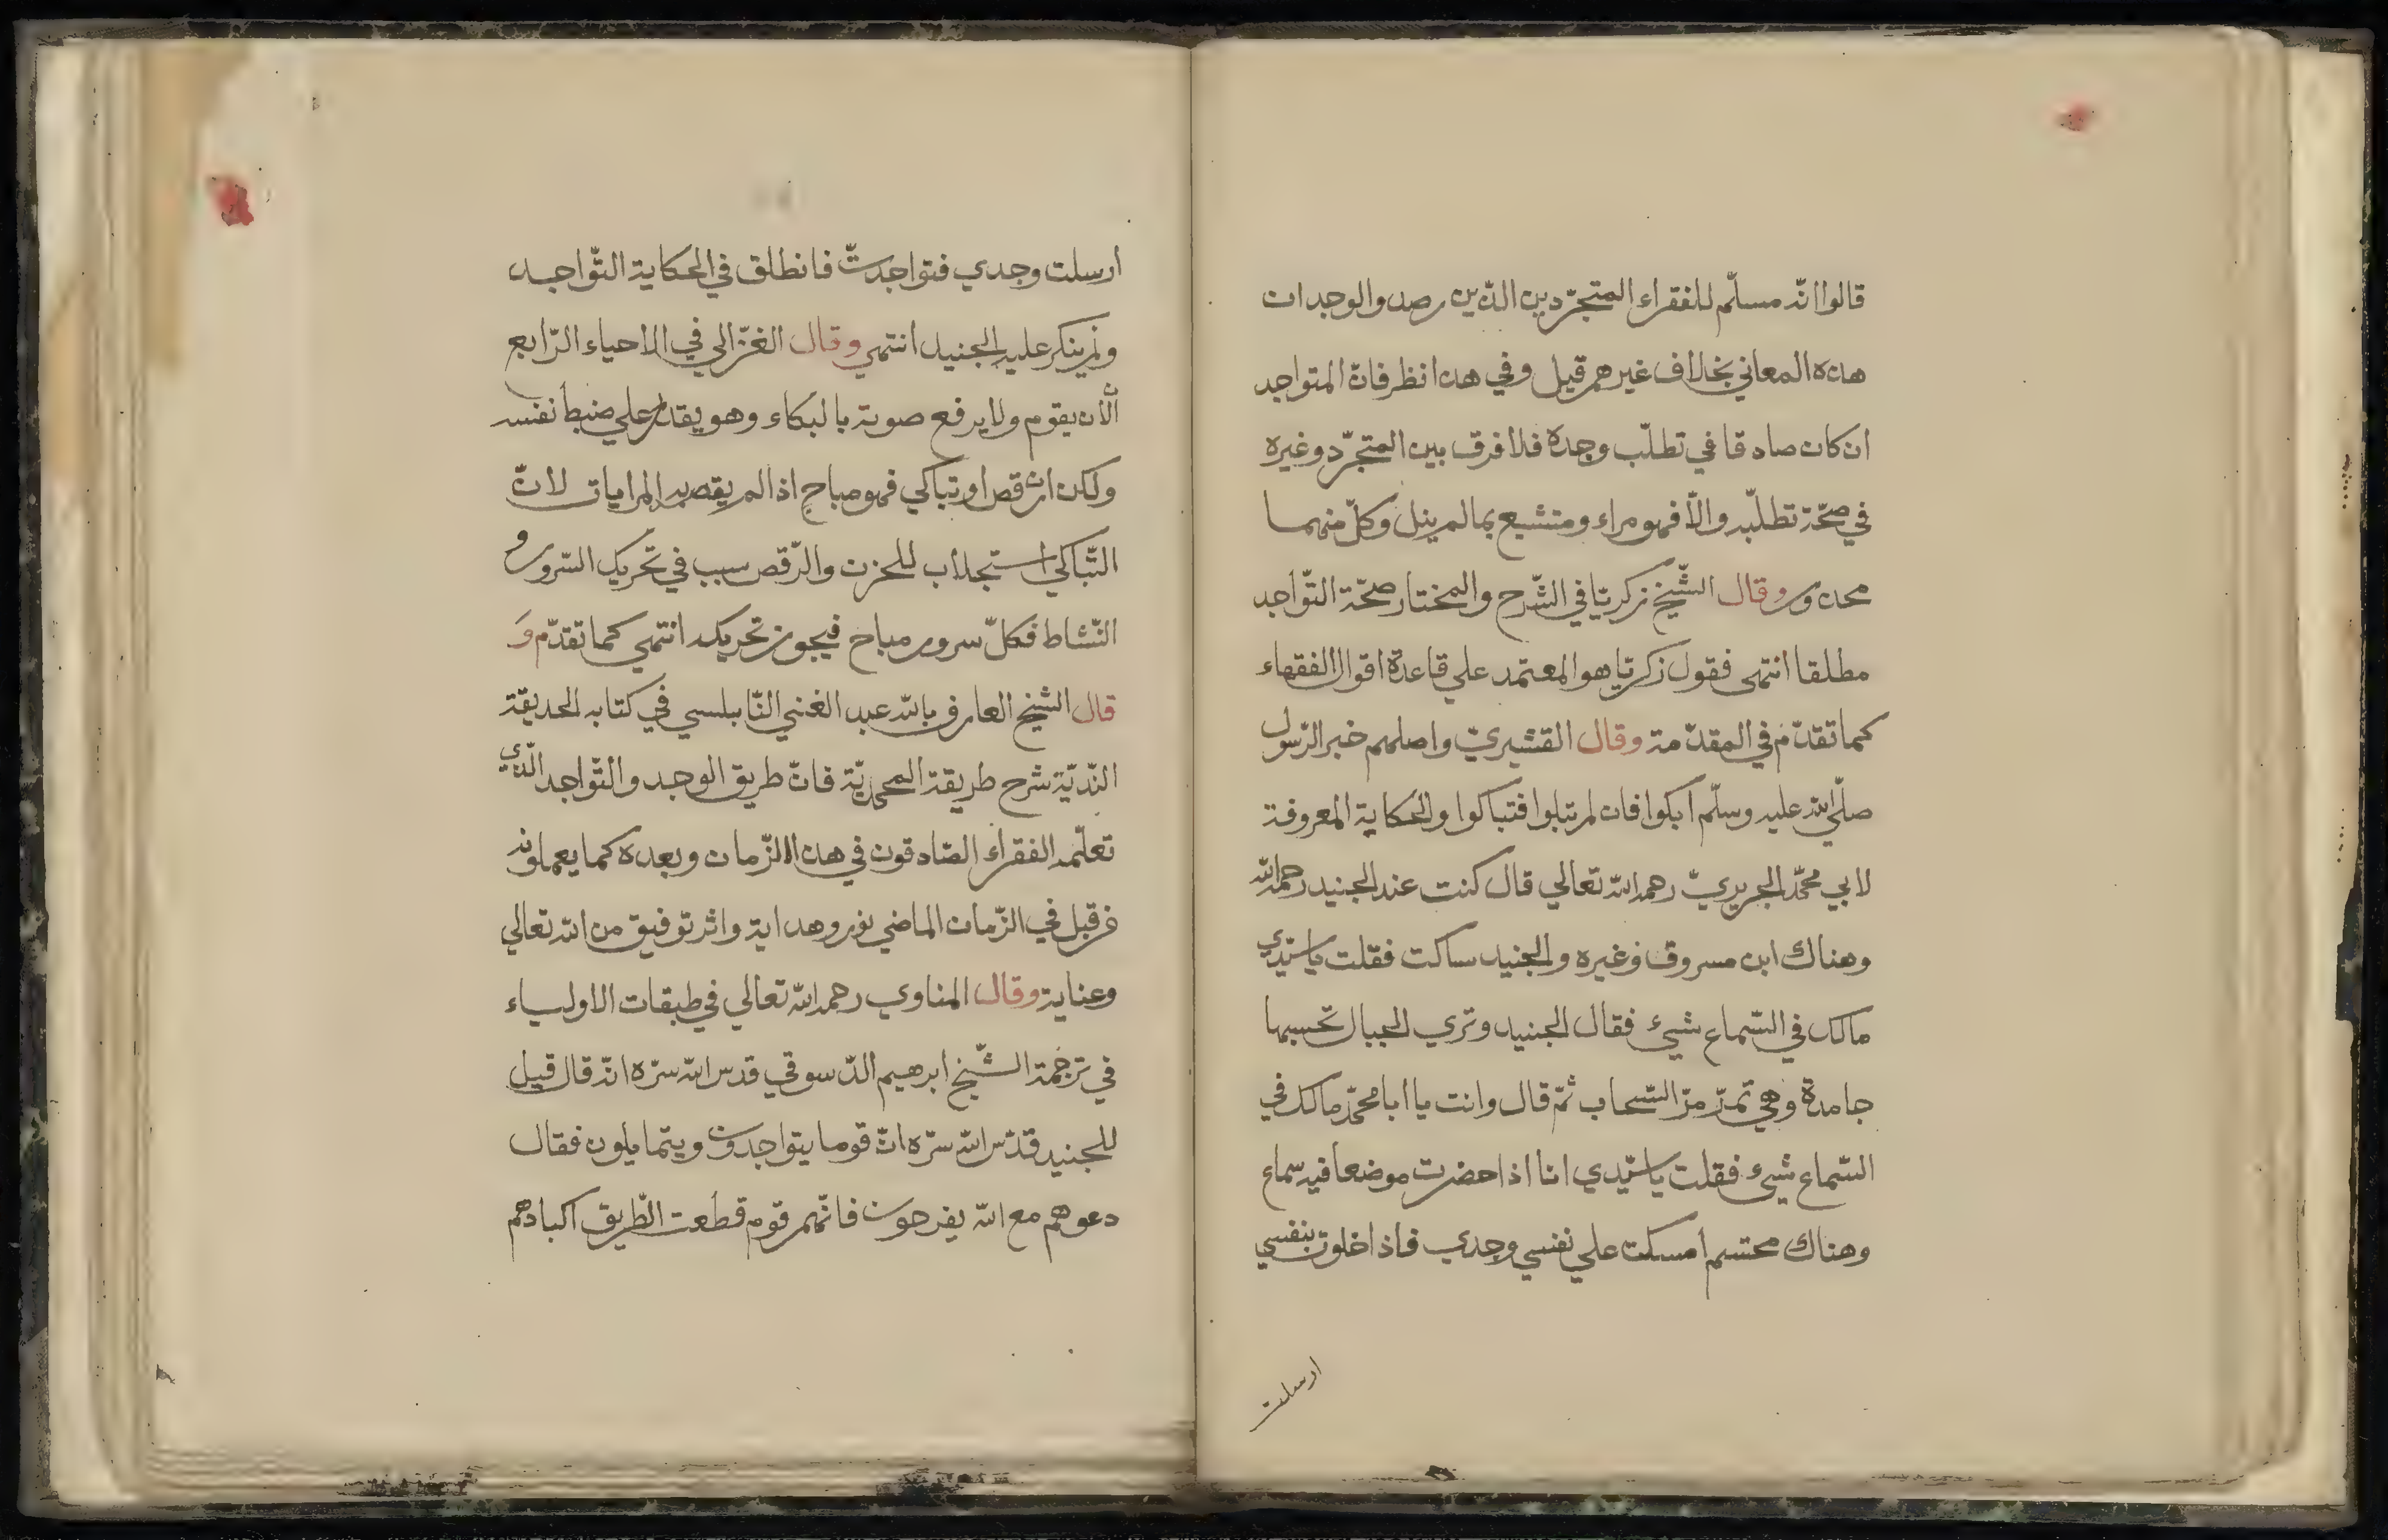 قالوا انّه مسلّم للفقراء المتجرّدين الذّين رصدوا لوجدان
هذه المعاني بخلاف غيرهم قيل وفي هذا نظر فانّ المتواجد
ان كان صادقا في تطلّب وجدة فلا فرق بين المتجرّد وغيره
في صحّة تطلّبه والّا فهو مراء ومتشيع بما لم ينل وكلّ منهما
محذور وقال الشّيخ زكريّا في الشّرح والمختار صحّة التّواجد
مطلقا انتهى فقول زكريّا هو المعتمد علي قاعدة اقوال الفقهاء
كما تقدّم في المقدّمة وقال القشيريّ واصلهم خبر الرّسول
صلّي الله عليه وسلّم ابكوا فان لم تبكوا فتباكوا والحكاية المعروفة
لابي محمّد الجريريّ رحمه الله تعالي قال كنت عند الجنيد رحمه الله
وهناك ابن مسروق وغيره والجنيد ساكت فقلت يا سيّدي
مالك في السّماع شيئ فقال الجنيد وتري الجبال تحسبها
جامدة وهي تمرّ مرّ السّحاب ثمّ قال وانت يا ابا محمّد مالك في
السّماع شيئ فقلت يا سيّدي انا اذا حضرت موضعا فيه سماع
وهناك محتشم أمسكت علي نفسي وجدي فاذا خلوت بنفسي
ارسلت
أرسلت وجدي فتواجدتّ فانطلق في الحكاية التّواجد
ولم ينكر عليه الجنيد انتهي وقال الغزّالي في الاحياء الرّابع
الّا ان يقوم ولا يرفع صوته بالبكاء وهو يقدر علي ضبط نفسه
ولكن ان رقص او تباكي فهو مباح اذا لم يقصد به المرايات لانّ
التّباكي استجلاب للحزن والرّقص سبب في تحريك السّرور و
النّشاط فكلّ سرور مباح فيجوز تحريكه انتهي كما تقدّم وَ
قال الشيخ العارف بالله عبد الغني النّابلسي في كتابه الحديقة
النّديّة شرح طريقة المحمديّة فانّ طريق الوجد والتّواجد الّذي
تعلّمه الفقراء الصّادقون في هذا الزّمان وبعده كما يعملونه
من قبل في الزّمان الماضي نور وهداية واثر توفيق من الله تعالي
وعناية وقال المناوي رحمه الله تعالي في طبقات الاولياء
في ترجمة الشّيخ ابرهيم الدّسوقي قدس الله سرّه انّه قال قيل
للجنيد قدّس الله سرّه انّ قوما يتواجدون ويتمايلون فقال
دعوهم مع الله يفرحون فانّهم قوم قطعت الطّريق اكبادهم